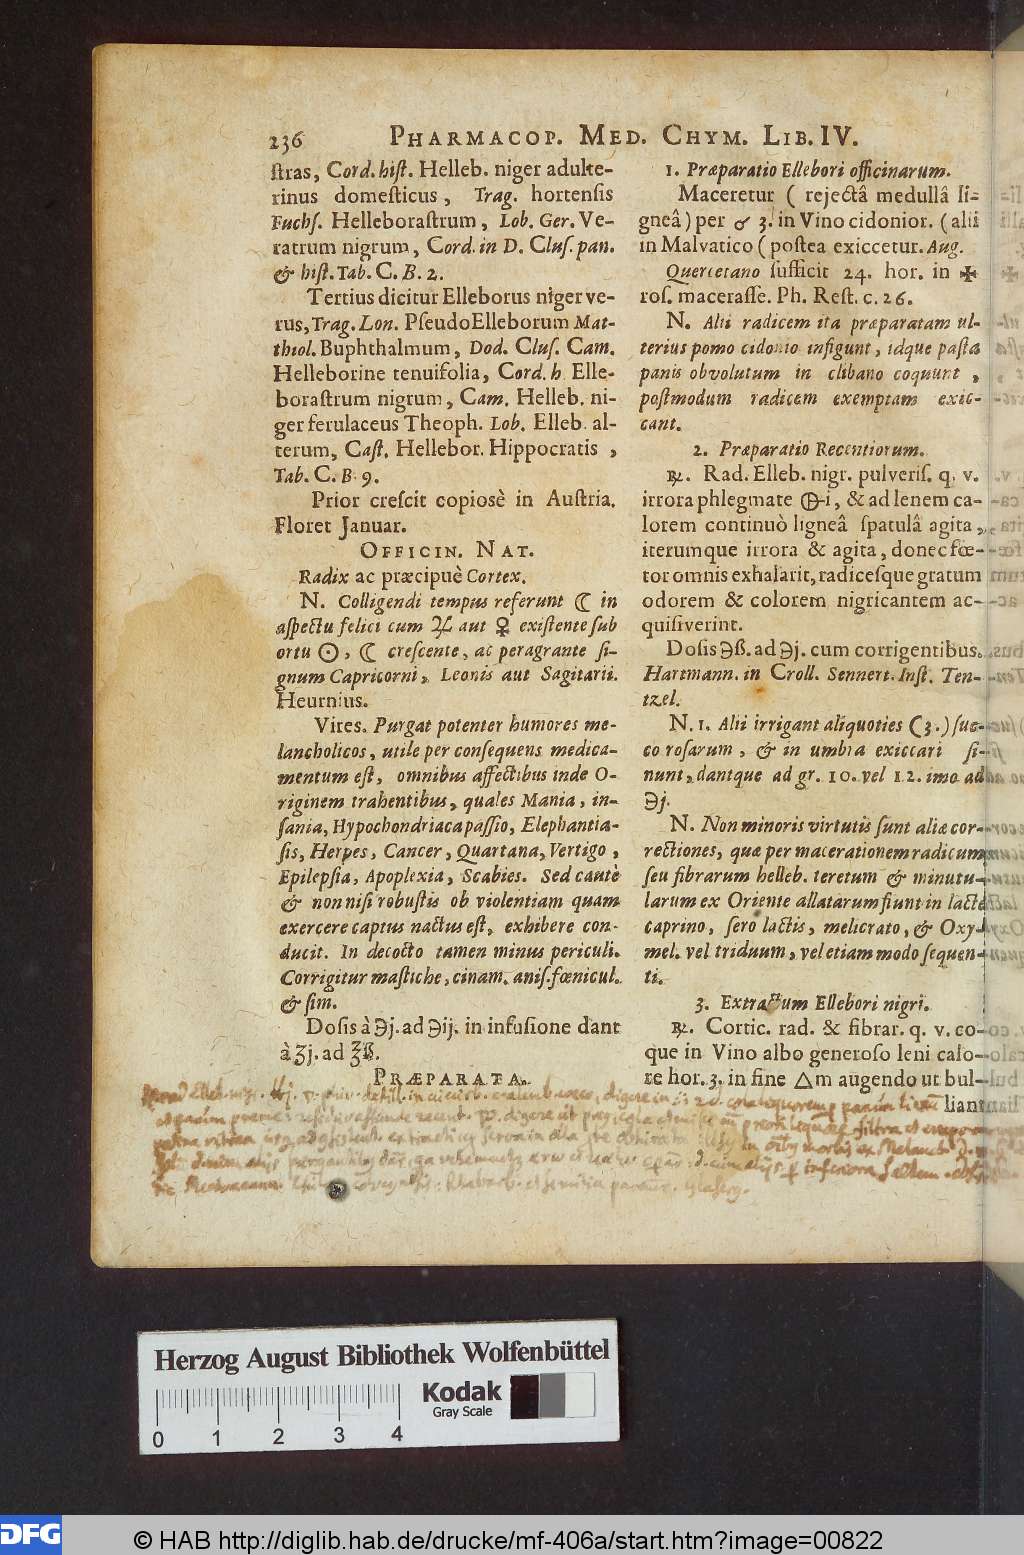 236 PHARMACOP. MED. CHYM. LIB. IV.
ſtras, Cord. hiſt. Helleb. niger adulte-
rinus domeſticus, Trag. hortenſis
Fuchſ. Helleboraſtrum, Lob. Ger. Ve-
ratrum nigrum, Cord. in D. Cluſ. pan.
& hiſt. Tab. C. B. 2.
Tertius dicitur Elleborus niger ve-
rus, Trag. Lon. PſeudoElleborum Mat-
thiol. Buphthalmum, Dod. Cluſ. Cam.
Helleborine tenuifolia, Cord. h Elle-
boraſtrum nigrum, Cam. Helleb. ni-
ger ferulaceus Theoph. Lob. Elleb. al-
terum, Caſt. Hellebor. Hippocratis,
Tab. C. B. 9.
Prior creſcit copiosè in Auſtria.
Floret Januar.
OFFICIN. NAT.
Radix ac præcipuè Cortex.
N. Colligendi tempus referunt ☾ in
aſpectu felici cum ♃ aut ♀ exiſtente ſub
ortu ☉, ☾ creſcente, ac peragrante ſi-
gnum Capricorni, Leonis aut Sagitarii.
Heurnius.
Vires. Purgat potenter humores me-
lancholicos, utile per conſequens medica-
mentum eſt, omnibus affectibus inde O-
riginem trahentibus, quales Mania, in-
ſania, Hypochondriaca paſſio, Elephantia-
ſis, Herpes, Cancer, Quartana, Vertigo,
Epilepſia, Apoplexia, Scabies. Sed cautè
& non niſi robuſtis ob violentiam quam
exercere captus nactus eſt, exhibere con-
ducit. In decocto tamen minus periculi.
Corrigitur maſtiche, cinam. aniſ. fœnicul.
& ſim.
Doſis à ℈j. ad ℈ij. in infuſione dant
à ʒj. ad ʒß.
PRÆPARATA.
1. Præparatio Ellebori officinarum.
Maceretur ( rejectâ medullâ li-
gneâ ) per ♂ 3. in Vino cidonior. ( alii
in Malvatico ( poſtea exiccetur. Aug.
Quercetano ſufficit 24. hor. in ✠
roſ. maceraſſe. Ph. Reſt. c. 26.
N. Alii radicem ita præparatam ul-
terius pomo cidonio infigunt, idque paſta
panis obvolutum in clibano coquunt,
poſtmodum radicem exemptam exic-
cant.
2. Præparatio Recentiorum.
℞. Rad. Elleb. nigr. pulveriſ. q. v.
irrora phlegmate i, & ad lenem ca-
lorem continuò ligneâ ſpatulâ agita,
iterumque irrora & agita, donec fœ-
tor omnis exhalarit, radiceſque gratum
odorem & colorem nigricantem ac-
quiſiverint.
Doſis ℈ß. ad ℈j. cum corrigentibus.
Hartmann. in Croll. Sennert. Inſt. Ten-
tzel.
N. 1. Alii irrigant aliquoties (3.) ſuc-
co roſarum, & in umbra exiccari ſi-
nunt, dantque ad gr. 10. vel 12. imo ad
℈j.
N. Non minoris virtutis ſunt aliæ cor-
rectiones, quæ per macerationem radicum
ſeu fibrarum helleb. teretum & minutu-
larum ex Oriente allatarum fiunt in lacte
caprino, ſero lactis, melicrato, & Oxy-
mel. vel triduum, vel etiam modo ſequen-
ti.
3. Extractum Ellebori nigri.
℞. Cortic. rad. & fibrar. q. v. co-
que in Vino albo generoſo leni calo-
re hor. 3. in fine △m augendo ut bul-
liant
Herzog August Bibliothek Wolfenbüttel
Kodak
Gray Scale
0 1 2 3 4
DFG
© HAB http://diglib.hab.de/drucke/mf-406a/start.htm?image=00822